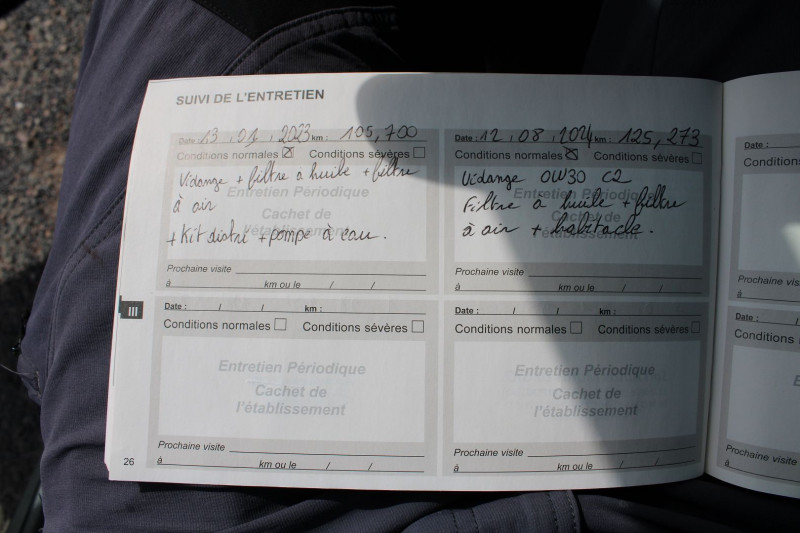 SUIVI DE L'ENTRETIEN
Date : 13 . 01 . 2023 km : 105,700
Conditions normales ☒ Conditions sévères ☐
Vidange + filtre a huile + filtre
à air
+ Kit distri + pompe à eau.
Entretien Périodique
Cachet de
l'établissement
Prochaine visite
à km ou le / /
Date : 12 . 08 . 2024 km : 125,273
Conditions normales ☒ Conditions sévères ☐
Vidange 0W30 C2
Filtre a huile + filtre
à air + habitacle.
Entretien Périodique
Cachet de
Prochaine visite
à km ou le / /
Date :
Condition
Prochaine vis
à
III
Date : / / km :
Conditions normales ☐ Conditions sévères ☐
Entretien Périodique
Cachet de
l'établissement
Prochaine visite
à km ou le / /
Date : / / km :
Conditions normales ☐ Conditions sévères ☐
Entretien Périodique
Cachet de
l'établissement
Prochaine visite
à km ou le / /
Date :
Conditions
Prochaine visi
à
26